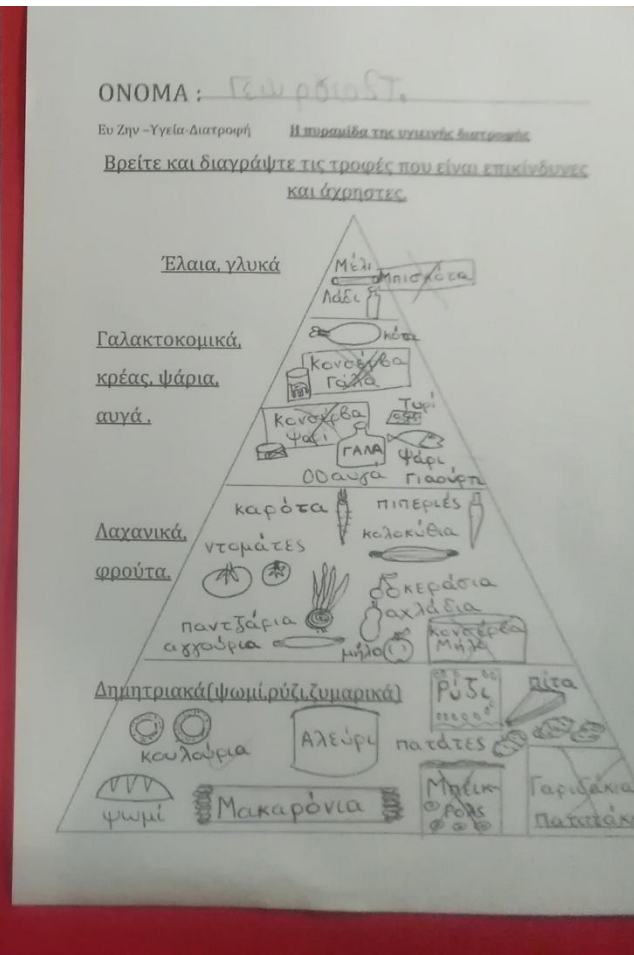 ΟΝΟΜΑ :
Ευ Ζην –Υγεία-Διατροφή Η πυραμίδα της υγιεινής διατροφής
Βρείτε και διαγράψτε τις τροφές που είναι επικίνδυνες
και άχρηστες.
Έλαια, γλυκά
Μέλι
Μπισκότα
Λάδι
Γαλακτοκομικά,
κρέας, ψάρια,
αυγά .
κότα
Κονσέρβα
Γάλα
Κονσέρβα
Ψάρι
Τυρί
ΓΑΛΑ
ψάρι
αυγά Γιαούρτι
Λαχανικά,
φρούτα,
καρότα πιπεριές
κολοκύθια
ντομάτες
κεράσια
αχλάδια
παντζάρια
Κονσέρβα
Μήλο
αγγούρια μήλο
Δημητριακά(ψωμί,ρύζι,ζυμαρικά)
Ρύζι πίτα
κουλούρια Αλεύρι πατάτες
ψωμί Μακαρόνια
Μπέικ-
Ρολς
Γαριδάκια